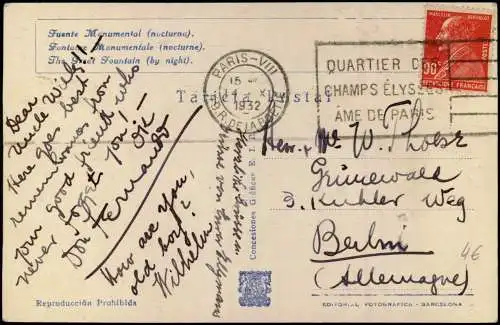 Fuente Monumental (nocturna).
Fontaine Monumentale (nocturne).
The Great Fountain (by night).
Dear
Uncle Willi!
Here goes best
remembrances from
your good friend who
never forget you!
Don Fernando
How are you,
old boy?
Wilhelm
Tarjeta Postal
PARIS-VIII
15
14 XI
1932
QUARTIER DES
CHAMPS ELYSÉES
ÂME DE PARIS
90c
REPUBLIQUE FRANÇAISE
Herr W.
Grünewald
3. Weg
Berlin
(Allemagne)
46
Reproducción Prohibida
EDITORIAL FOTOGRAFICA - BARCELONA